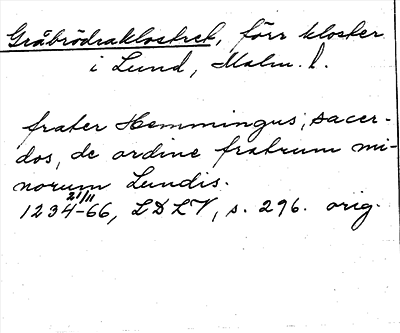 Gråbrödraklostret, förr kloster
i Lund, Malm. l.
frater Hemmingus, sacer-
dos, de ordine fratrum mi-
norum Lundis.
21/11
1234-66, LDLV, s. 296. orig.